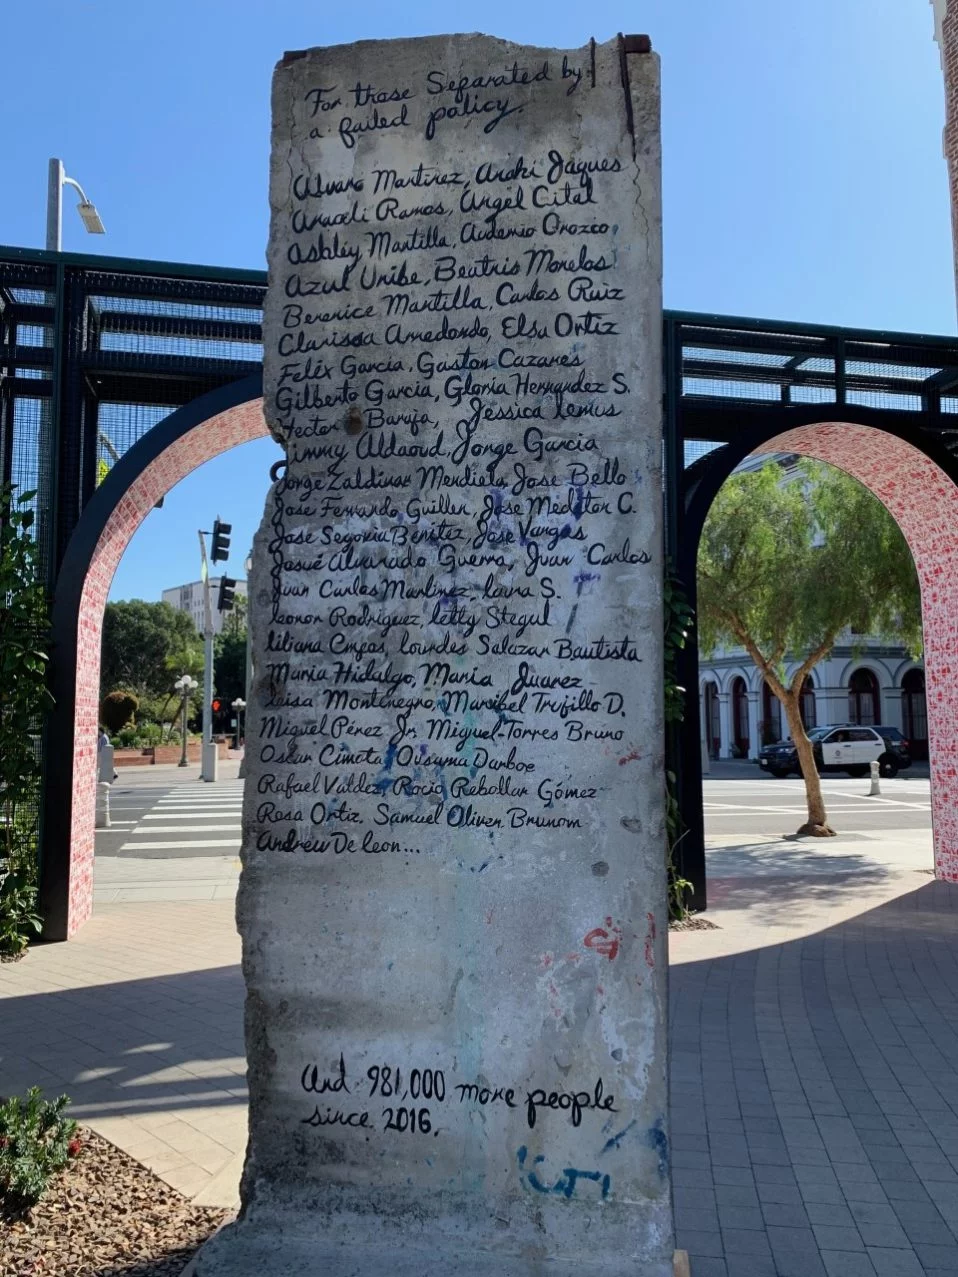 For those Separated by
a failed policy.
Alvaro Martinez, Araki Jaques
Araceli Ramos, Angel Cital
Ashley Mantilla, Audemio Orozco,
Azul Uribe, Beatris Morelos
Berenice Mantilla, Carlos Ruiz
Clarissa Arredondo, Elsa Ortiz
Feléx Garcia, Gaston Cazares
Gilberto Garcia, Gloria Hernandez S.
Hector Baraja, Jessica Lemus
Jimmy Aldaoud, Jorge Garcia
Jorge Zaldivar Mendieta, Jose Bello
Jose Fernando Guillen, Jose Meditor C.
Jose Segovia Benitez, Jose Vargas
Josué Alvarado Guerra, Juan Carlos
Juan Carlos Martinez, Laura S.
Leonor Rodriguez, Letty Stegul
Liliana, Lourdes Salazar Bautista
Maria Hidalgo, Maria Juarez
Luisa Montenegro, Maribel Trujillo D.
Miguel Pérez Jr. Miguel-Torres Bruno
Oscar Cimota,
Rafael Valdez, Rocio Rebollar Gómez
Rosa Ortiz, Samuel Oliver Brunom
Andrew De leon...
And 981,000 more people
since 2016.